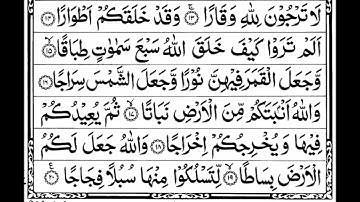 لَا تَرْجُوْنَ لِلّٰهِ وَقَارًا ۚ﴿۱۳﴾ وَقَدْ خَلَقَكُمْ اَطْوَارًا ﴿۱۴﴾
اَلَمْ تَرَوْا كَيْفَ خَلَقَ اللّٰهُ سَبْعَ سَمٰوٰتٍ طِبَاقًا ۙ﴿۱۵﴾
وَّجَعَلَ الْقَمَرَ فِيْهِنَّ نُوْرًا وَّجَعَلَ الشَّمْسَ سِرَاجًا ﴿۱۶﴾
وَاللّٰهُ اَنْۢبَتَكُمْ مِّنَ الْاَرْضِ نَبَاتًا ۙ﴿۱۷﴾ ثُمَّ يُعِيْدُكُمْ
فِيْهَا وَيُخْرِجُكُمْ اِخْرَاجًا ﴿۱۸﴾ وَاللّٰهُ جَعَلَ لَكُمُ
الْاَرْضَ بِسَاطًا ۙ﴿۱۹﴾ لِّتَسْلُكُوْا مِنْهَا سُبُلًا فِجَاجًا ۠﴿۲۰﴾